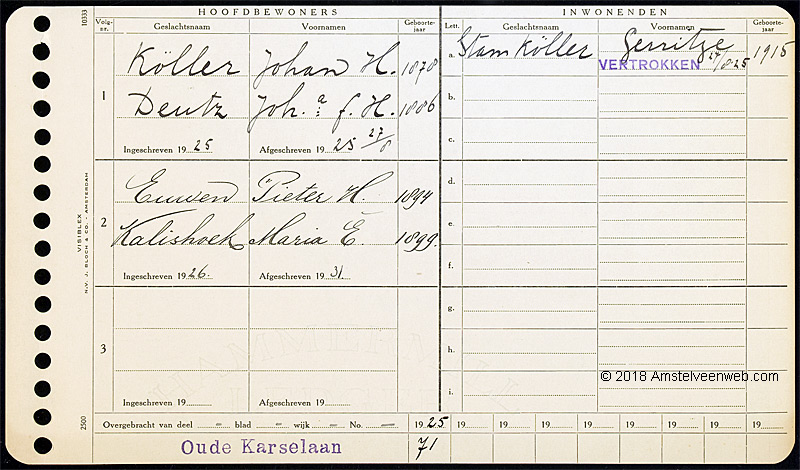 HOOFDBEWONERS
INWONENDEN
Volg-nr.
Geslachtsnaam
Voornamen
Geboorte-jaar
Lett.
Geslachtsnaam
Voornamen
Geboorte-jaar
1
Köller Johan H. 1878
Deutz Joh.a f. H. 1886
Ingeschreven 1925 Afgeschreven 1925 27/8
2
Euwen Pieter H. 1894
Kalishoek Maria E 1899.
Ingeschreven 1926. Afgeschreven 1931.
3
Ingeschreven 19 Afgeschreven 19
a. Stam Köller Gerritze 1915
VERTROKKEN 27/8 25
b.
c.
d.
e.
f.
g.
h.
i.
© 2018 Amstelveenweb.com
Overgebracht van deel – blad – wijk – No. – 1925 19 19 19 19 19 19 19 19
Oude Karselaan 71
10333
VISIBLEX
N.V. J. BLOCH & CO. - AMSTERDAM
2500